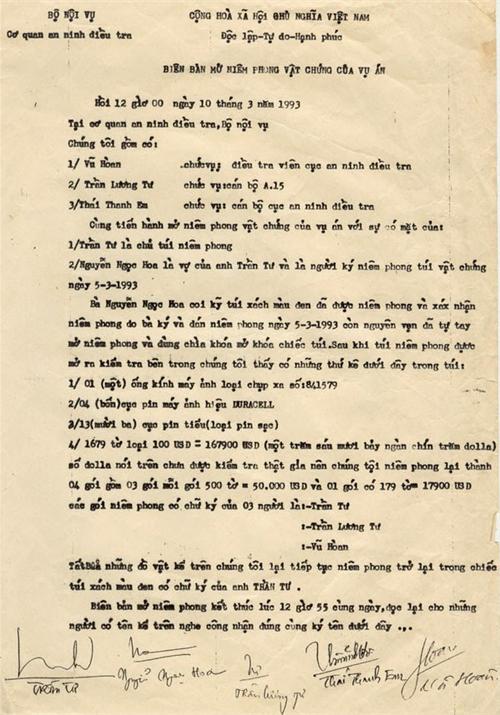 BỘ NỘI VỤ
CỘNG HOÀ XÃ HỘI CHỦ NGHĨA VIỆT NAM
Cơ quan an ninh điều tra
Độc lập-Tự do-Hạnh phúc
BIÊN BẢN MỞ NIÊM PHONG VẬT CHỨNG CỦA VỤ ÁN
Hồi 12 giờ 00 ngày 10 tháng 3 năm 1993
Tại cơ quan an ninh điều tra,Bộ nội vụ
Chúng tôi gồm có:
1/ Vũ Hoàn .chứcvụ: điều tra viên cục an ninh điều tra
2/ Trần Lương Tư chức vụ:cán bộ A.15
3/Thái Thanh Em chức vụ: cán bộ cục an ninh điều tra
Cùng tiến hành mở niêm phong vật chứng của vụ án với sự có mặt của:
1/Trần Tư là chủ túi niêm phong
2/Nguyễn Ngọc Hoa là vợ của anh Trần Tư và là người ký niêm phong túi vật chứng
ngày 5-3-1993
Bà Nguyễn Ngọc Hoa coi kỹ túi xách màu đen đã được niêm phong và xác nhận
niêm phong do bà ký và dán niêm phong ngày 5-3-1993 còn nguyên vẹn đã tự tay
mở niêm phong và dùng chìa khoá mở khóa chiếc túi.Sau khi túi niêm phong được
mở ra kiểm tra bên trong chúng tôi thấy có những thứ kê dưới đây trong túi:
1/ 01 (một) ống kính máy ảnh loại chụp xa số:841579
2/04 (bốn)cục pin máy ảnh hiệu DURACELL
3/13(mười ba) cục pin tiểu(loại pin sạc)
4/ 1679 tờ loại 100 USD = 167900 USD (một trăm sáu mươi bảy ngàn chín trăm dolla)
số dolla nói trên chưa được kiểm tra thật giả nên chúng tội niêm phong lại thành
04 gói gồm 03 gói mỗi gói 500 tờ = 50.000 USD và 01 gói có 179 tờ= 17900 USD
các gói niêm phong có chữ ký của 03 người là:-Trần Tư
:-Trần Lương Tư
:-Vũ Hoàn
những đồ vật kể trên chúng tôi lại tiếp tục niêm phong trở lại trong chiếc
túi xách màu đen có chữ ký của anh TRẦN TƯ .
Biên bản mở niêm phong kết thúc lúc 12 giờ 55 cùng ngày,đọc lại cho những
người có tên kể trên nghe công nhận đúng cùng ký tên dưới đây ...
TRẦN TƯ
Nguyễn Ngọc Hoa
Trần Lương Tư
Thái Thanh Em
Vũ Hoàn